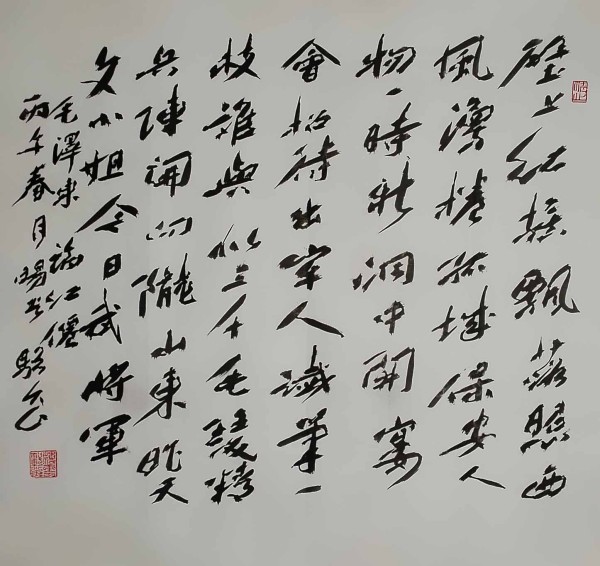 壁上紅旗飄落照西
風漫捲孤城保安人
物一時新洞中開宴
會招待出牢人纖筆一
枝誰與似三千毛瑟精
兵陣開向隴山東昨天
文小姐今日武將軍
毛澤東臨江僊
丙午春月